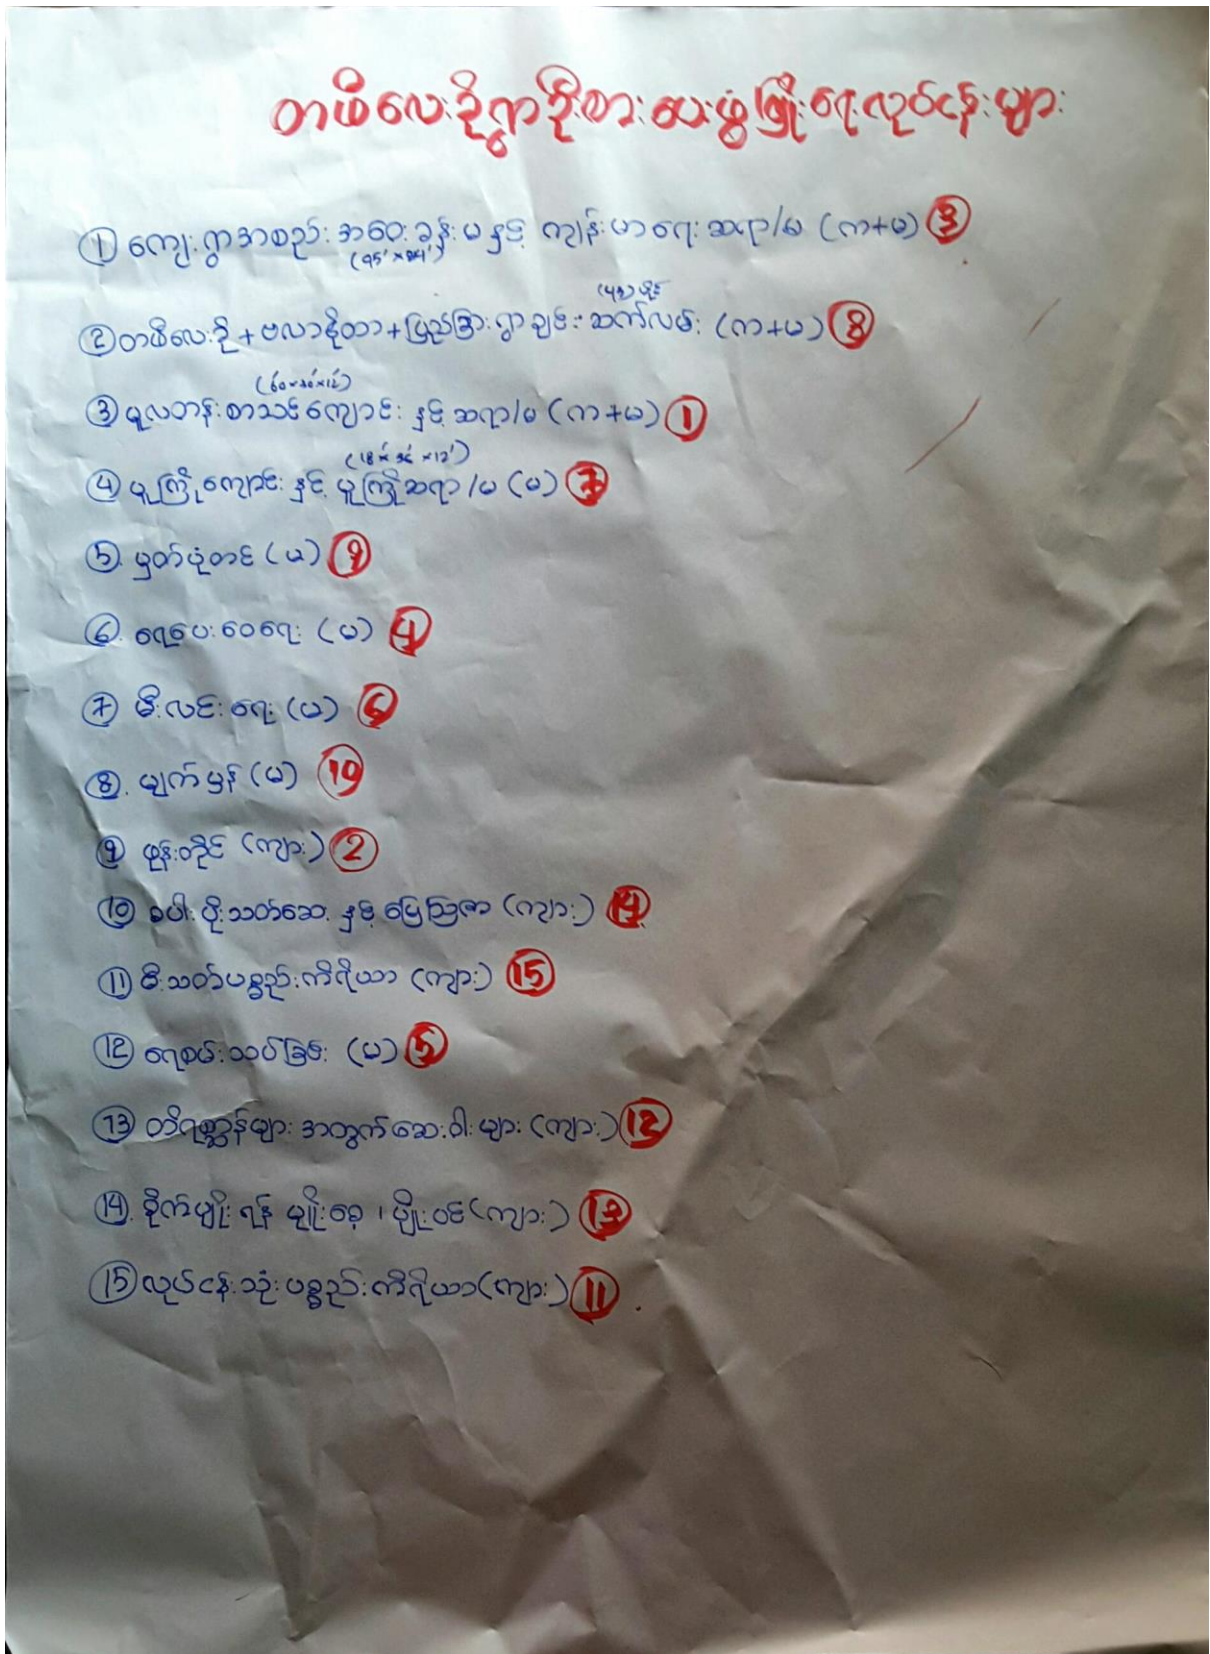 တဖီလေးဒိုရွာဦးစားပေးဖွံ့ဖြိုးရေးလုပ်ငန်းများ
① ကျေးရွာအစည်းအဝေးခန်းမနှင့် ကျန်းမာရေးဆရာ/မ (ကာ+မ) ③
② တဖီလေးဒို + ဗလာနိုထာ + ပြည်ခြားရွာချင်းဆက်လမ်း (ကာ+မ) ⑧
(60'×30'×12')
③ မူလတန်းစာသင်ကျောင်း နှင့် ဆရာ/မ (ကာ+မ) ①
④ မူကြိုကျောင်း နှင့် မူကြိုဆရာ/မ (မ) ⑦
⑤ မှတ်ပုံတင် (မ) ⑨
⑥. ရေပေးဝေရေး (မ) ④
⑦ မီးလင်းရေး (မ) ⑥
⑧. မျက်မှန် (မ) ⑩
⑨ ဖုန်းတိုင် (ကျား) ②
⑩ စပါးပိုးသတ်ဆေး နှင့် မြေဩဇာ (ကျား) ⑭
⑪ မီးသတ်ပစ္စည်းကိရိယာ (ကျား) ⑮
⑫ ရေစမ်းသပ်ခြင်း (မ) ⑤
⑬ တိရစ္ဆာန်များအတွက်ဆေးဝါးများ (ကျား) ⑫
⑭. စိုက်မျိုးရန် မျိုးစေ့၊ မျိုးပင် (ကျား) ⑬
⑮ လုပ်ငန်းသုံးပစ္စည်းကိရိယာ (ကျား) ⑪